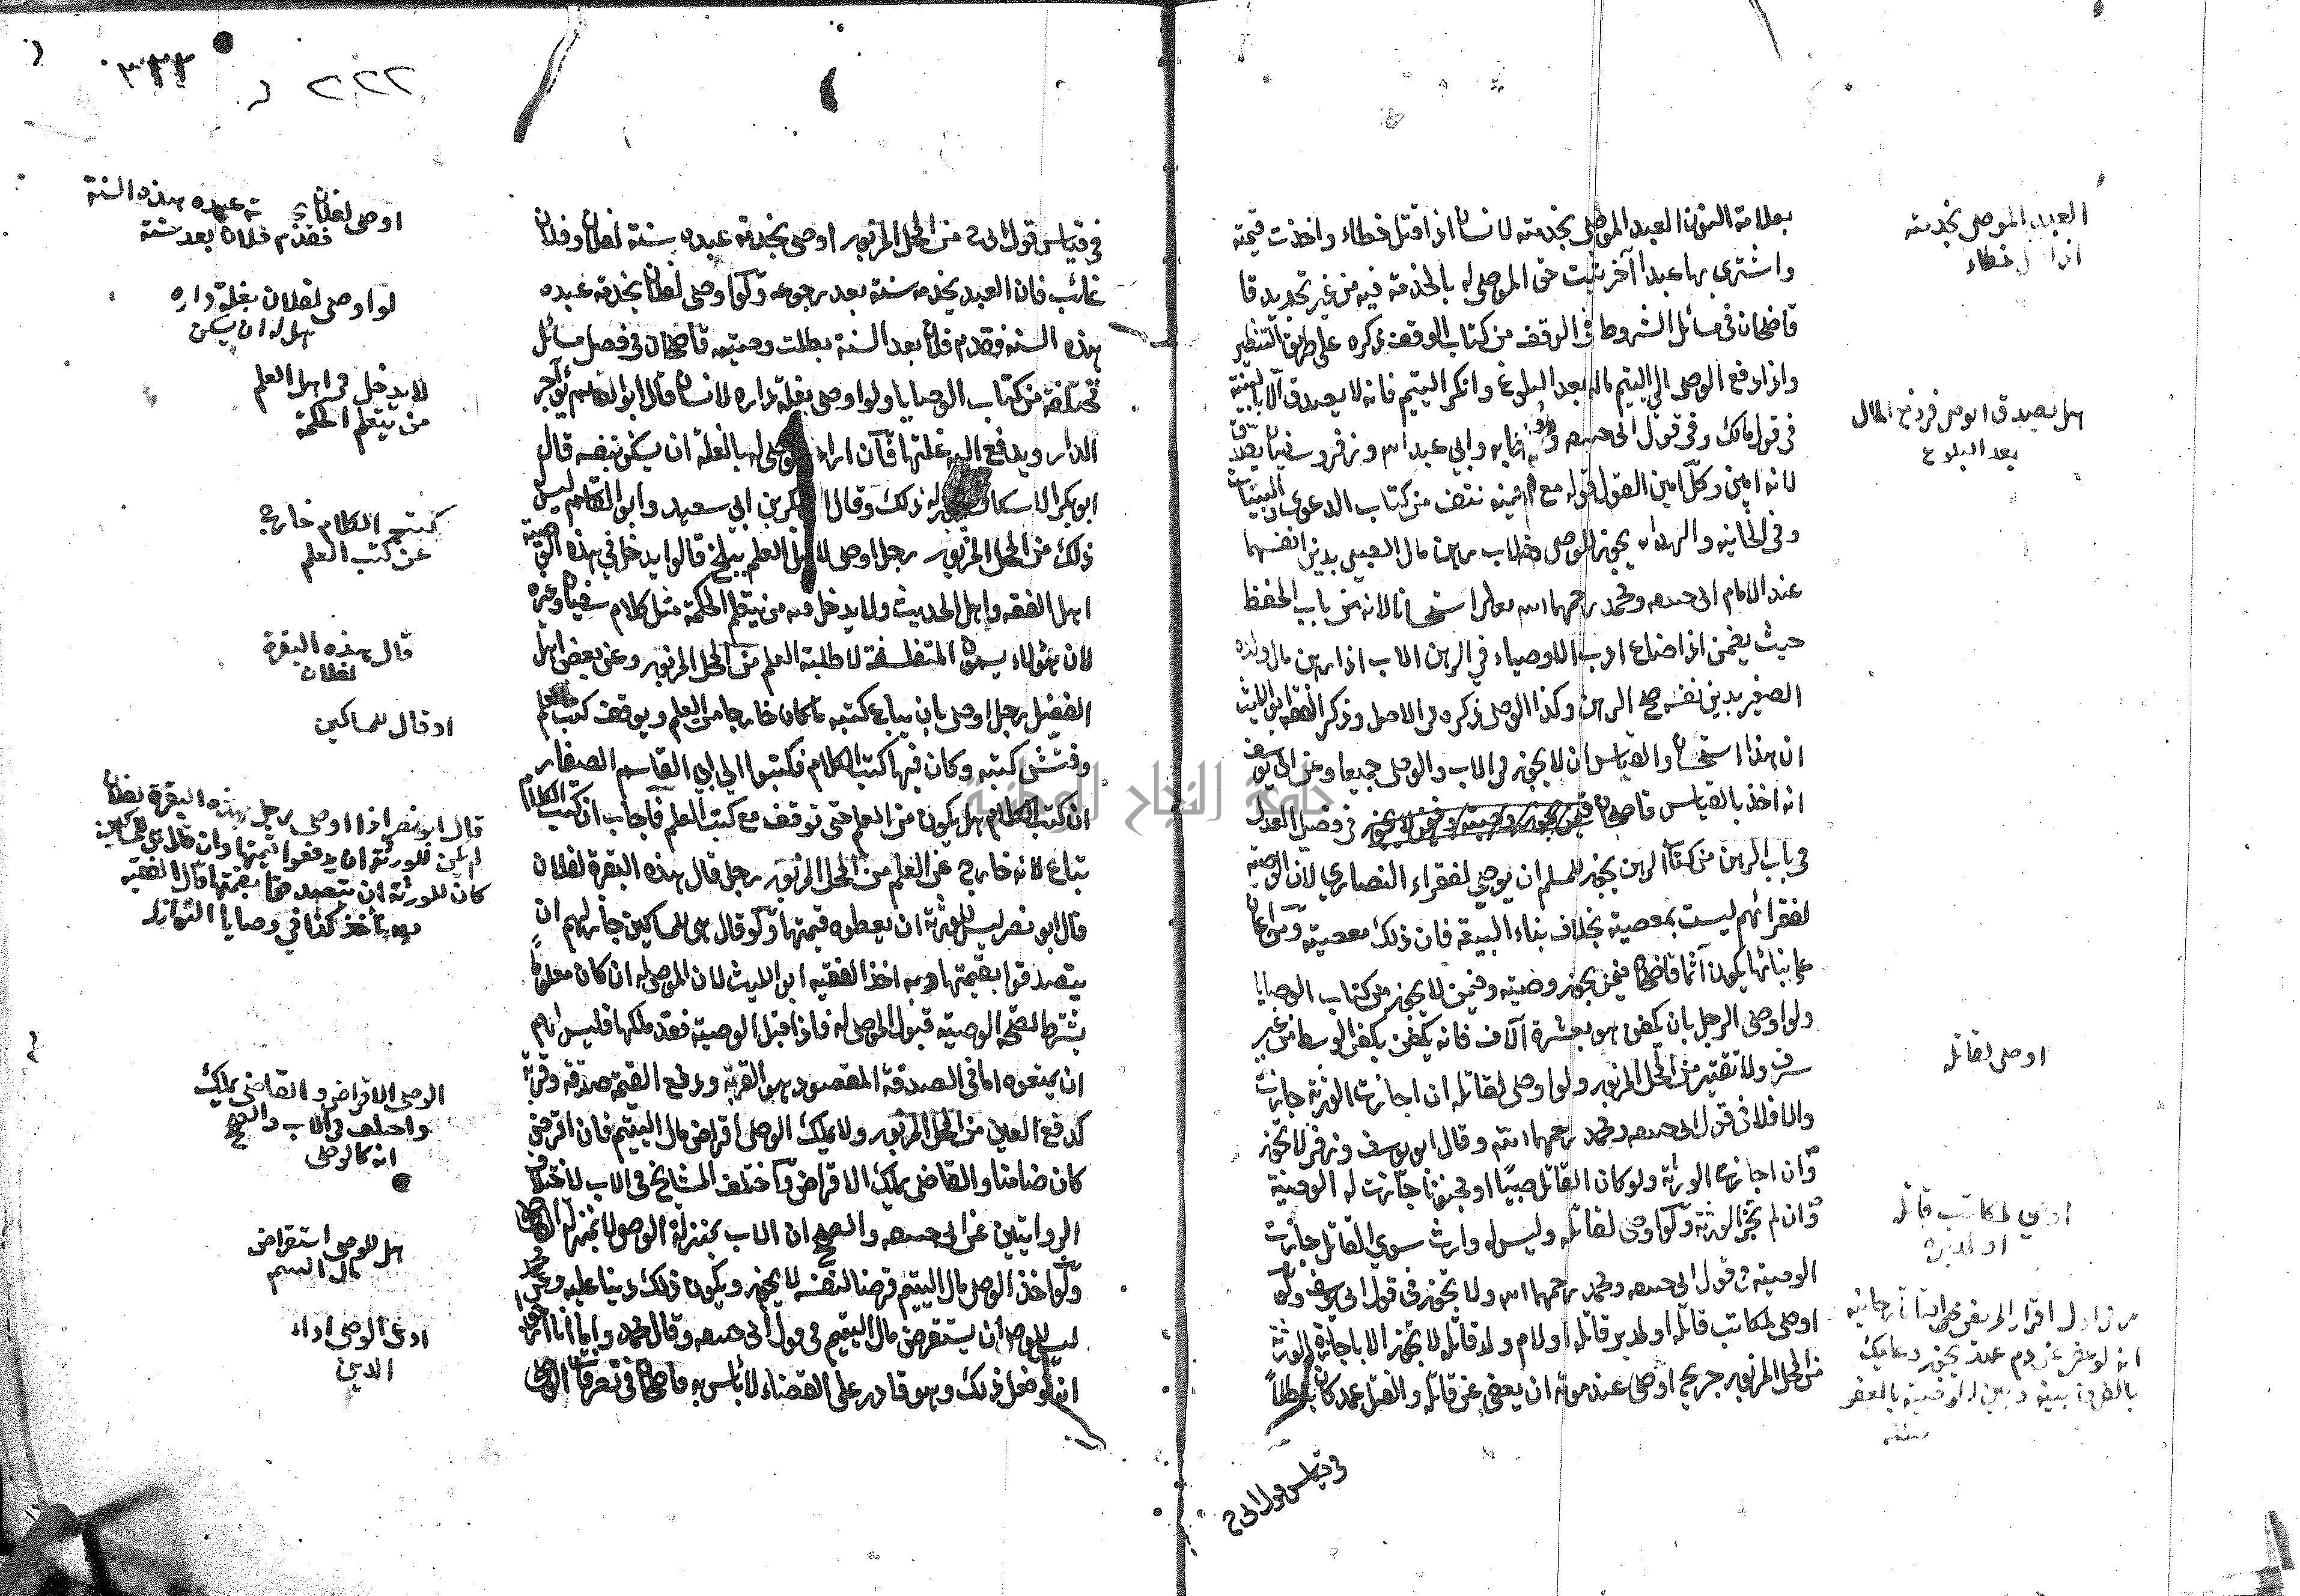 العبد الموصى بخدمته
خطاء
هل يصدق الوصي في دفع المال
بعد البلوغ
اوصى لقاتله
اوصى لمكاتب قاتله
او لمدبره
بعلامة النون العبد الموصى بخدمته لانسان اذا قتل خطاء واخذت قيمته
واشترى بها عبدا آخر يثبت حق الموصى له بالخدمة فيه من غير تجديد قا
قاضيخان في مسائل الشروط في الوقف من كتاب الوقف ذكره على طريق التنظير
واذا دفع الوصي الى اليتيم ماله بعد البلوغ وانكر اليتيم فانه لا يصدق الا ببينة
في قول مالك وفي قول ابى حنيفه وابي عبد الله وزفر وسفيان يصدق
لانه امين وكل امين القول قوله مع يمينه نتف من كتاب الدعوى والبينات
وفي الخانيه والهداية يجوز للوصي والاب رهن مال الصبي بدين انفسهما
عند الامام ابى حنيفه ومحمد رحمهما الله استحسانا لانه من باب الحفظ
حيث يضمن اذا ضاع ادب الاوصياء في الرهن الاب اذا رهن مال ولده
الصغير بدين نفسه صح الرهن وكذا الوصي ذكره في الاصل وذكر الفقيه ابو الليث
ان هذا استحسان والقياس ان لا يجوز في الاب والوصي جميعا وعن ابى يوسف
انه اخذ بالقياس قاضيخان في فصل العدل
في باب الرهن من كتاب الرهن يجوز للمسلم ان يوصي لفقراء النصارى لان الوصية
لفقرائهم ليست بمعصية بخلاف بناء البيعة فان ذلك معصية ومن اعان
على بنائها يكون آثما قاضيخان فيمن يجوز وصيته وفيمن لا يجوز من كتاب الوصايا
ولو اوصى الرجل بان يكفن هو بعشرة آلاف فانه يكفن بكفن الوسط من غير
سرف ولا تقتير من المحل المزبور ولو اوصى لقاتله ان اجازت الورثة جازت
والا فلا في قول ابى حنيفه ومحمد رحمهما الله وقال ابو يوسف وزفر لا تجوز
وان اجازت الورثة ولو كان القاتل صبيا او مجنونا جازت له الوصية
وان لم تجز الورثة ولو اوصى لقاتله وليس له وارث سوى القاتل جازت
الوصية في قول ابى حنيفه ومحمد رحمهما الله ولا يجوز في قول ابى يوسف ولو
اوصى لمكاتب قاتله او لمدبر قاتله او لام ولد قاتله لا تجوز الا باجازة الورثة
من المحل المزبور جريح اوصى عند موته ان يعفى عن قاتله والقتل عمد كان باطلا
في قياس قول ابى ح
٢٢٢
اوصى لفلان عبده هذه السنة
فقدم فلان بعد سنة
لو اوصى لفلان بغلة داره
هل له ان يسكن
لا يدخل في اهل العلم
من يتعلم الحكمة
كتب الكلام خارج
عن كتب العلم
قال هذه البقرة
لفلان
او قال للمساكين
قال ابو نصر اذا اوصى رجل بهذه البقرة لفلان
لم يكن للورثة ان يدفعوا قيمتها وان قال هي للمساكين
كان للورثة ان يتصدقوا بقيمتها قال الفقيه
وبه نأخذ كذا في وصايا النوازل
الوصي الاقراض والقاضي يملك
واختلف في الاب والصحيح
انه كالوصي
هل للوصي استقراض
مال اليتيم
ادعى الوصي اداء
الدين
في قياس قول ابى ح من المحل المزبور اوصى بخدمة عبده سنة لفلان وفلان
غائب فان العبد يخدمه سنة بعد رجوعه ولو اوصى لفلان بخدمة عبده
هذه السنة فقدم فلان بعد السنة بطلت وصيته قاضيخان في فصل مسائل
مختلفة من كتاب الوصايا ولو اوصى بغلة داره لانسان قال ابو القاسم يؤآجر
الدار ويدفع اليه غلتها فان اراد الموصى له بالغلة ان يسكن بنفسه قال
ابو بكر الاسكاف له ذلك وقال ابو بكر بن ابي سعيد وابو القاسم ليس
ذلك من المحل المزبور رجل اوصى لاهل العلم ببلخ قالوا يدخل في هذه الوصية
اهل الفقه واهل الحديث ولا يدخل فيه من يتعلم الحكمة مثل كلام سفيان وغيره
لان هؤلاء يسمون المتفلسفة لا طلبة العلم من المحل المزبور وعن بعض اهل
الفضل رجل اوصى بان يباع كتبه ما كان خارجا من العلم ويوقف كتب العلم
وفتش كتبه وكان فيها كتب الكلام فكتبوا الى ابى القاسم الصفار
ان كتب الكلام هل يكون من العلم حتى توقف مع كتب العلم فاجاب ان كتب الكلام
تباع لانه خارج عن العلم من المحل المزبور رجل قال هذه البقرة لفلان
قال ابو نصر ليس للورثة ان يعطوه قيمتها ولو قال هي للمساكين جاز لهم ان
يتصدقوا بقيمتها وبه اخذ الفقيه ابو الليث لان الموصى له ان كان معلوما
يشترط لصحة الوصية قبول الموصى له فاذا قبل الوصية فقد ملكها فليس لهم
ان يمنعوه اما في الصدقة المقصود هو القربة ودفع القيمة صدقة وقربة
كدفع العين من المحل المزبور ولا يملك الوصي اقراض مال اليتيم فان اقرض
كان ضامنا والقاضي يملك الاقراض واختلف المشايخ في الاب لاختلاف
الروايتين عن ابى حنيفه والصحيح ان الاب بمنزلة الوصي لا بمنزلة القاضي
ولو اخذ الوصي مال اليتيم قرضا لنفسه لا يجوز ويكون ذلك دينا عليه وعن محمد
ليس للوصي ان يستقرض مال اليتيم في قول ابى حنيفه وقال محمد واما انا ارجو
انه لو فعل ذلك وهو قادر على القضاء لا بأس به قاضيخان في تصرفات الوصي